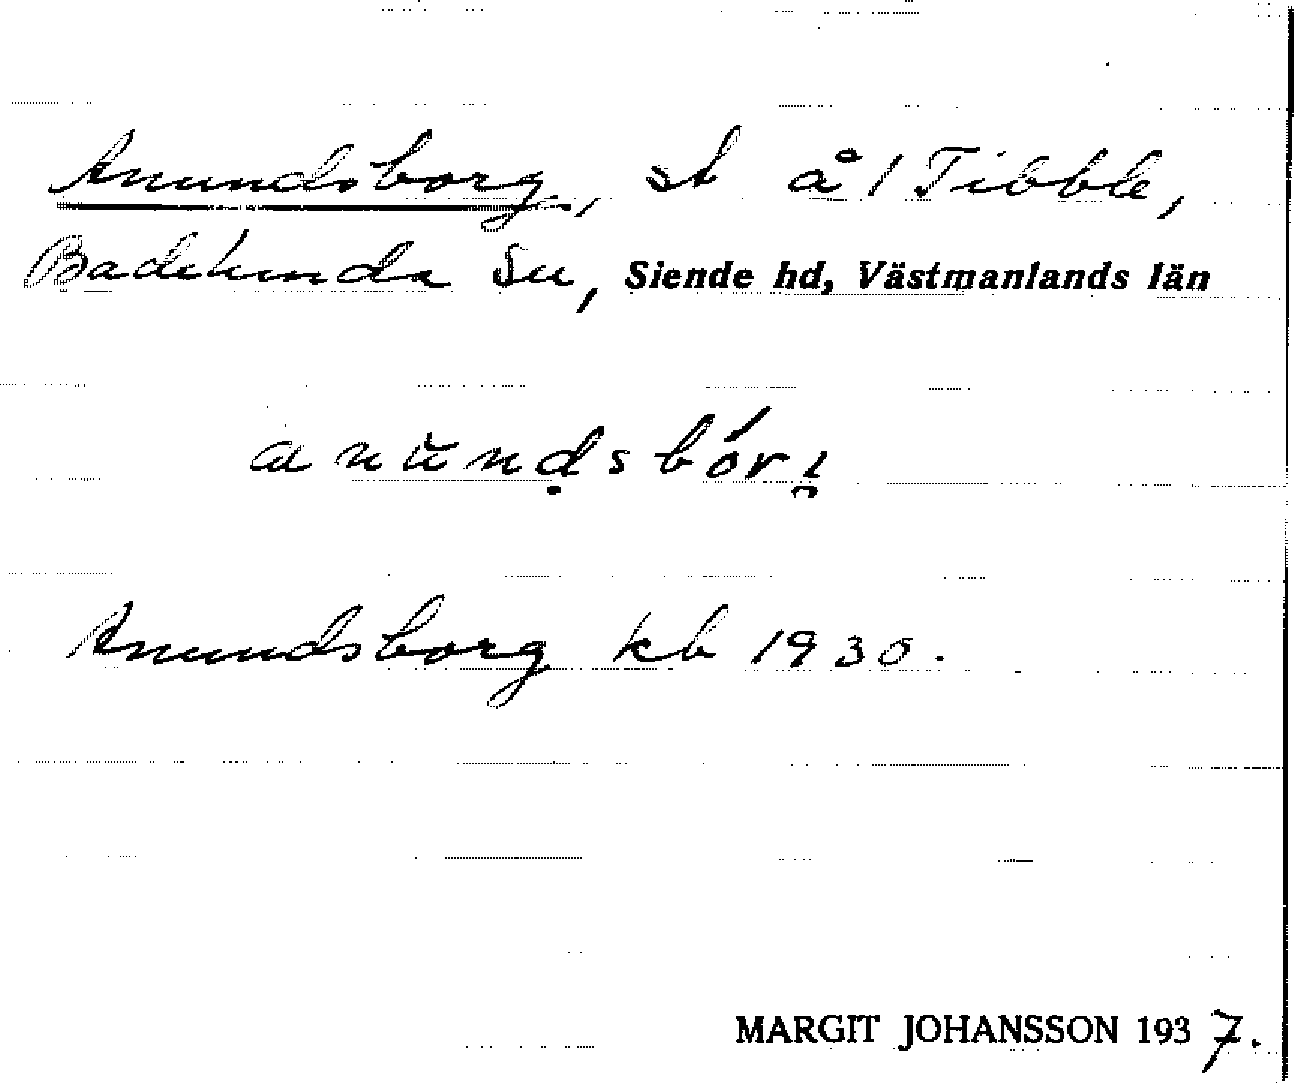 Anundsborg, st å 1 Tibble,
Badelunda sn, Siende hd, Västmanlands län
anŭnḍsbórı̯
Anundsborg kb 1930.
MARGIT JOHANSSON 1937.